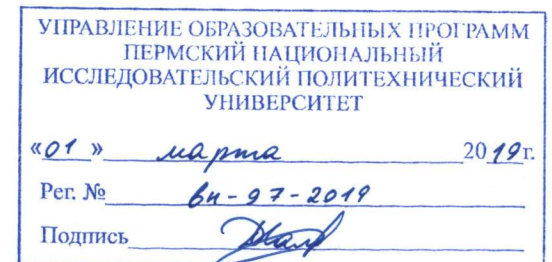 УПРАВЛЕНИЕ ОБРАЗОВАТЕЛЬНЫХ ПРОГРАММ
ПЕРМСКИЙ НАЦИОНАЛЬНЫЙ
ИССЛЕДОВАТЕЛЬСКИЙ ПОЛИТЕХНИЧЕСКИЙ
УНИВЕРСИТЕТ
«01» марта 2019г.
Рег. № вн-97-2019
Подпись